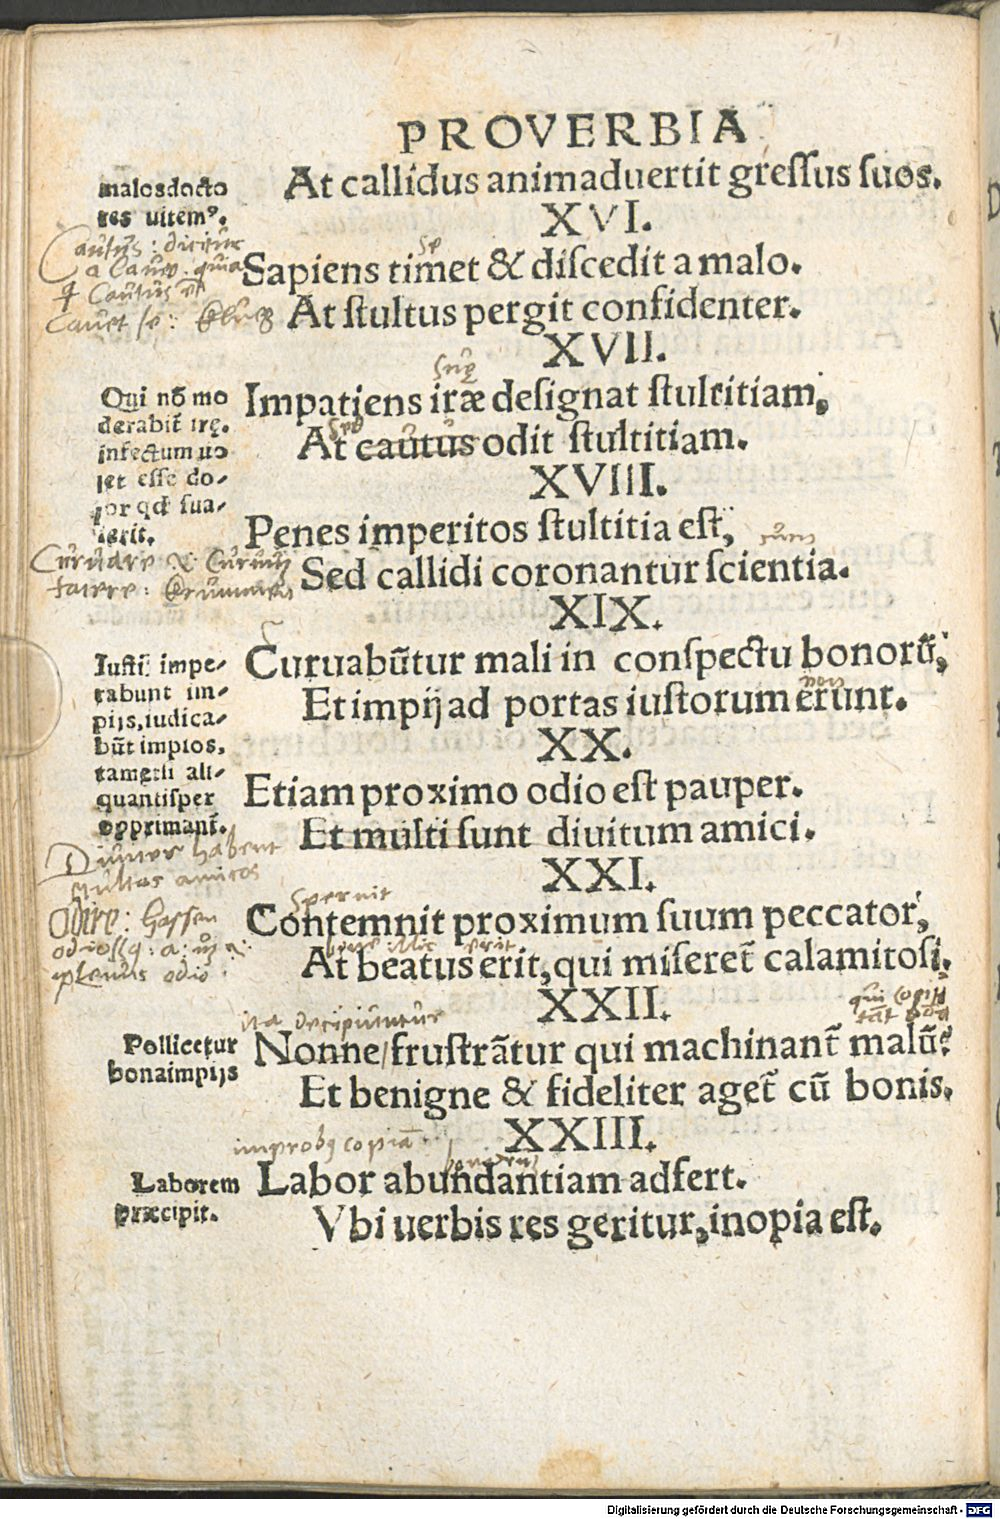 PROVERBIA
malosdocto
res uitemꝰ.
At callidus animaduertit greſſus ſuos.
XVI.
Cautus: dicitur
a
Cautus
Cauet ſe:
ſe
Sapiens timet & diſcedit a malo.
At ſtultus pergit confidenter.
XVII.
Qui nõ mo
derabit̃ irę.
infectum uo
let eſſe do-
lor qd̃ ſua-
ſerit.
Impatiens iræ deſignat ſtultitiam,
At cautus odit ſtultitiam.
XVIII.
Penes imperitos ſtultitia eſt,
Sed callidi coronantur ſcientia.
Curuare
facere:
XIX.
Iuſti impe-
rabunt im-
pijs, iudica-
bũt impios,
tametſi ali-
quantiſper
opprimant̃.
Curuabũtur mali in conſpectu bonorũ,
Et impij ad portas iuſtorum erunt.
XX.
Etiam proximo odio eſt pauper.
Et multi ſunt diuitum amici.
Diuites habent
multos amicos
XXI.
Odire: haſſen
plenus odio
ſpernit
Contemnit proximum ſuum peccator,
erit
At beatus erit, qui miſeret̃ calamitoſi.
XXII.
qui
ita decipiuntur
Pollicetur
bona impijs
Nonne fruſtrãtur qui machinant̃ malũ?
Et benigne & fideliter aget̃ cũ bonis.
XXIII.
copiã
Laborem
præcipit.
Labor abundantiam adfert.
Vbi uerbis res geritur, inopia eſt.
Digitalisierung gefördert durch die Deutsche Forschungsgemeinschaft - DFG